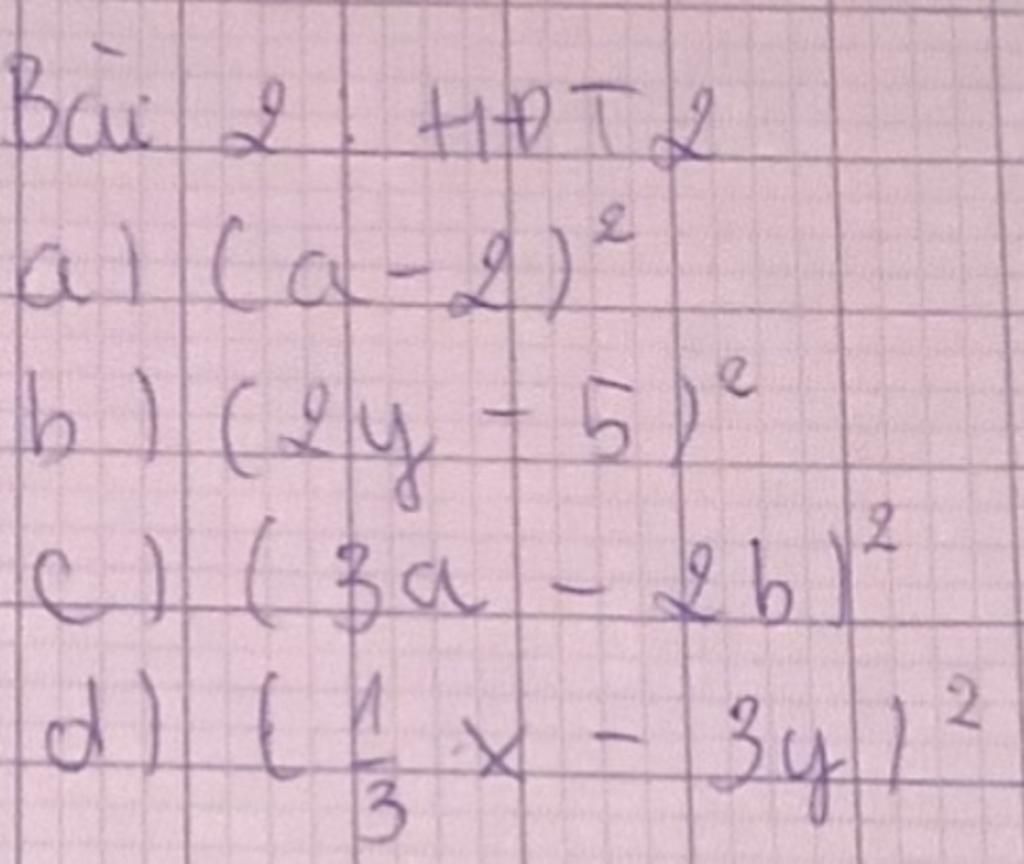 Bài 2. HĐT 2
a) (a - 2)²
b) (2y - 5)²
c) (3a - 2b)²
d) (1/3 x - 3y)²